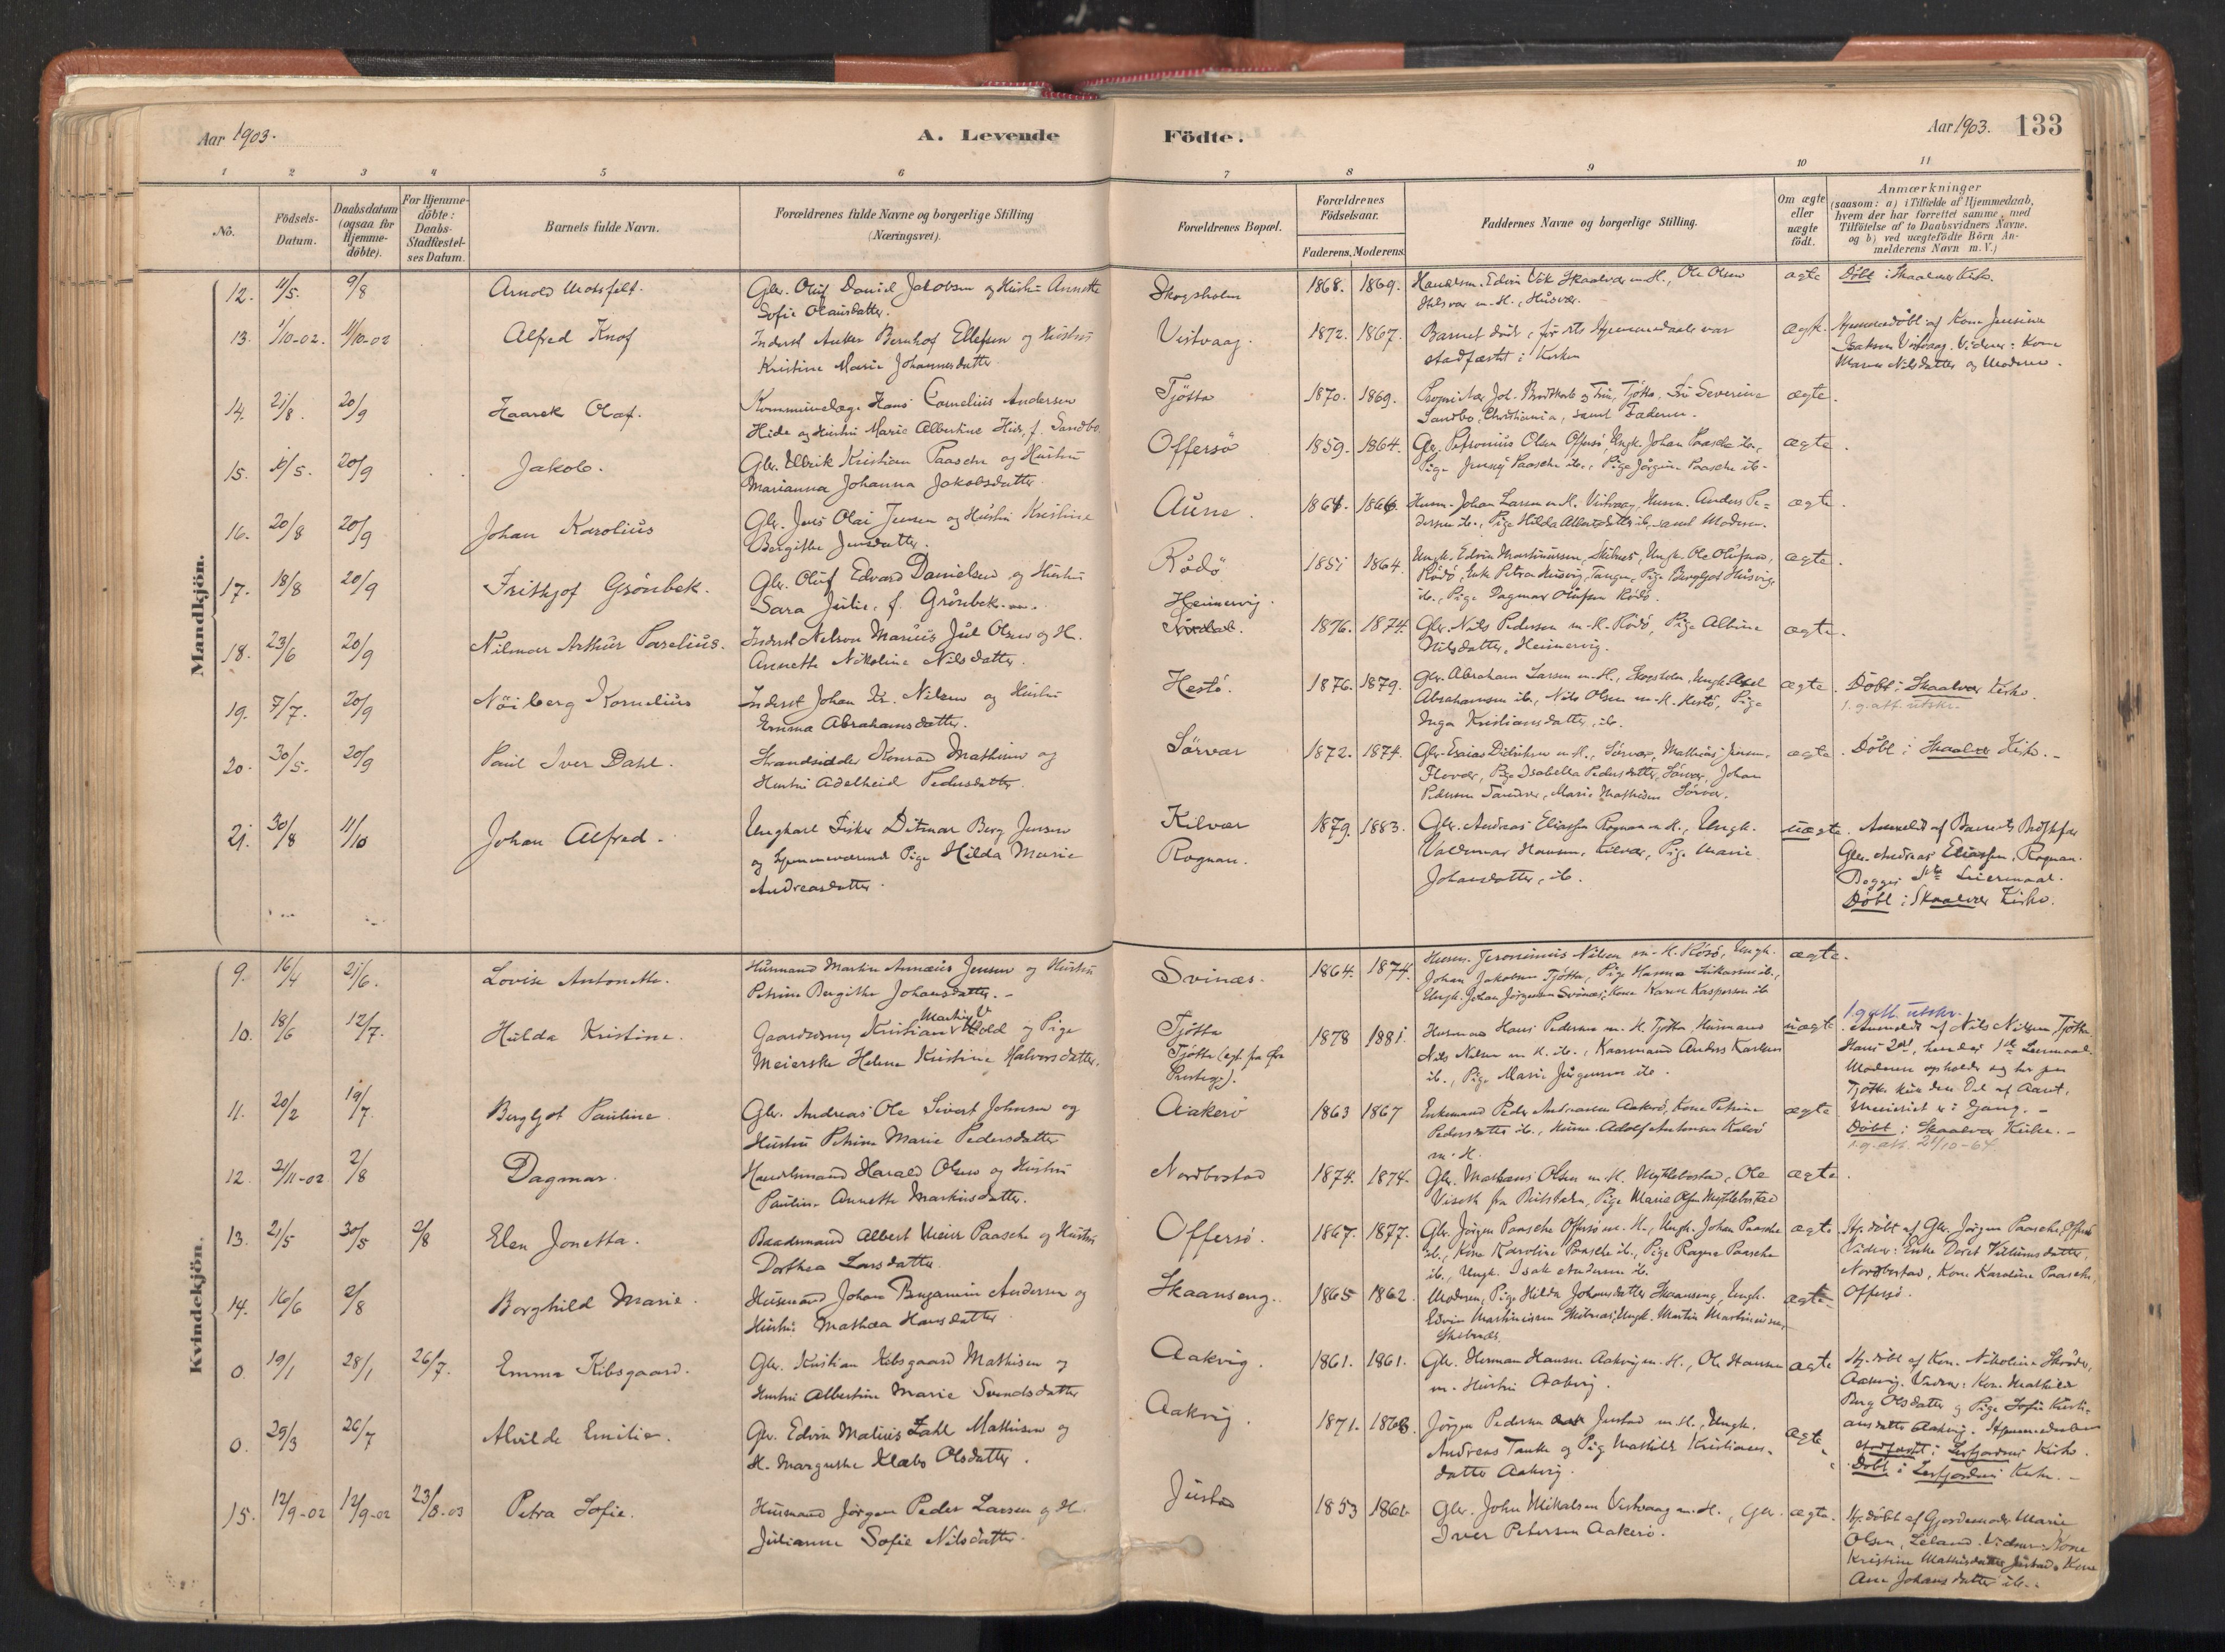 Aar 1903.
A. Levende
Födte.
Aar 1903. 133
1 2 3 4 5 6 7 8 9 10 11
No.
Födsels-
Datum.
Daabsdatum
(ogsaa for
Hjemme-
döbte).
For Hjemme-
döbte:
Daabs-
Stadfæstel-
ses Datum.
Barnets fulde Navn.
Forældrenes fulde Navne og borgerlige Stilling
(Næringsvei).
Forældrenes Bopæl.
Forældrenes
Födselsaar.
Faderens. Moderens.
Faddernes Navne og borgerlige Stilling.
Om ægte
eller
uægte
födt.
Anmærkninger
(saasom: a) i Tilfælde af Hjemmedaab,
hvem der har forrettet samme, med
Tilföielse af to Daabsvidners Navne.
og b) ved uægtefödte Börn An-
melderens Navn m. V.)
Mandkjön.
12. 11/5. 9/8 Arnold Motsfelt. Gbr. Oluf Daniel Jakobsen og Hustru Annette
Sofie Olausdatter.
Skogsholm 1868. 1869. Handelsm. Edvin Vik Skaalvær m. H., Ole Olsen
m. H., Husvær.
ægte Döbt i Skaalvær Kirke.
13. 1/10-02. 11/10-02 Alfred Knof Inderst Anker Bernhof Ellefsen og Hustru
Kristine Marie Johannesdatter
Vistvaag. 1872. 1867. Barnet döde, för dets Hjemmedaab var
stadfæstet i Kirken
ægte. Hjemmedöbt af Kone Jensine
Isaksen Vistvaag. Vidner: Kone
Maren Nilsdatter og Moderen.
14. 21/8. 20/9 Haarek Olaf. Kommunelæge Hans Cornelius Andersen
Hide og Hustru Marie Albertine Hide, f. Sandbo.
Tjötta 1870. 1869. Proprietær Joh. Brodtkorb og Frue, Tjötta, Frk. Severine
Sandbo, Christiania, samt Faderen.
ægte.
15. 16/5. 20/9 Jakob. Gbr. Ulrik Kristian Paasche og Hustru
Marianna Johanna Jakobsdatter
Offersö 1859. 1864. Gbr. Petronius Olsen Offersö, Ungk. Johan Paasche ib.,
Pige Jenny Paasche ib., Pige Jörgine Paasche ib.
ægte.
16. 20/8 20/9 Johan Karolius Gbr. Jens Olai Jensen og Hustru Kristine
Bergithe Jensdatter.
Aune. 1861. 1866. Husm. Johan Larsen m. H. Vistvaag, Husm. Anders Pe-
dersen ib., Pige Hilda Albertsdatter ib., samt Moderen.
ægte.
17. 18/8 20/9 Frithjof Grönbek. Gbr. Oluf Edvard Danielsen og Hustru
Sara Julie, f. Grönbek.
Rödö 1851 1864. Ungk. Edvin Martinussen, Skibnes, Ungk. Ole Olufsen,
Rödö, Enke Petra Husvig, Tangen, Pige Bergljot Husvig
ib., Pige Dagmar Olufsen Rödö.
ægte.
18. 23/6 20/9 Nilmar Arthur Parelius. Inderst Nelson Marius Jul Olsen og H.
Annette Nikoline Nilsdatter.
Heimervig.
1876. 1874. Gbr. Nils Pedersen m. H. Rödö, Pige Albine
Nilsdatter, Heimervig.
ægte.
19. 7/7. 20/9 Nöiberg Kornelius Inderst Johan Kr. Nilsen og Hustru
Emma Abrahamsdatter.
Hestö. 1876. 1879. Gbr. Abraham Larsen m. H., Skogsholm, Ungk. Axel
Abrahamsen ib., Nils Olsen m. H. Hestö, Pige
Inga Kristiansdatter, ib.
ægte. Döbt i Skaalvær Kirke.
1. g. att. utskr.
20. 30/5. 20/9 Paul Iver Dahl. Strandsidder Konrad Mathisen og
Hustru Adelheid Pedersdatter.
Sörvær 1872. 1874. Gbr. Esaias Didriksen m. H., Sörvær, Mathias Jensen,
Flovær, Pige Isabella Pedersdatter, Sörvær, Johan
Pedersen Sandvær, Marie Mathisen Sörvær.
ægte. Döbt i Skaalvær Kirke.
21. 30/8 11/10 Johan Alfred. Ungkarl Fisker Ditmar Berg Jensen
og hjemmeværende Pige Hilda Marie
Andreasdatter.
Kilvær
Rognan. 1879. 1883. Gbr. Andreas Eliassen Rognan m. H., Ungk.
Valdemar Hansen, Kilvær, Pige Marie
Johansdatter, ib.
uægte. Anmeldt af Barnets Bedstefar
Gbr. Andreas Eliassen, Rognan.
Begges 1ste Leiermaal.
Döbt i Skaalvær Kirke.
Kvindekjön.
9. 16/4 21/6. Lovise Antonette. Husmand Martin Annæus Jensen og Hustru
Petrine Bergithe Johansdatter.
Svinæs. 1864. 1874. Husm. Jeronimus Nilsen m. H. Rösö, Ungk.
Johan Jakobsen Tjötta, Pige Hanna Eriksen ib.,
Ungk. Johan Jörgensen Svinæs, Kone Karen Kaspersen ib
ægte.
10. 18/6 12/7. Hulda Kristine. Gaardsdreng Kristian Martin Vold og Pige
Meierske Helene Kristine Halvorsdatter.
Tjötta
Tjötta 1878 1881. Husmand Hans Pedersen m. H. Tjötta, Husmand
Nils Nilsen m. H. ib., Kaarmand Anders Karlsen
ib., Pige Marie Jörgensen ib.
uægte 1 g. att. utskr.
Anmeldt af Nils Nilsen, Tjötta.
Hans 2det, hendes 1ste Leiermaal.
Moderen opholder sig her paa
Tjötta kun den Del af Aaret,
Meieriet er i Gang.
11. 20/2 19/7. Bergljot Pauline. Gbr. Andreas Ole Sivert Johnsen og
Hustru Petrine Marie Pedersdatter
Aakerö 1863 1867 Enkemand Peder Andreasen Aakerö, Kone Petrine
Pedersdatter ib., Husm. Adolf Antonsen Kalvö
m. H.
ægte Döbt i Skaalvær Kirke.
1. g. att. 21/10-64
12. 21/11-02 2/8 Dagmar. Handelsmand Harald Olsen og Hustru
Pauline Annette Markusdatter.
Nordbostad 1874. 1874. Gbr. Mathæus Olsen m. H. Mythlebostad, Ole
Viseth fra, Pige Marie Olsen Mythlebostad
ægte.
13. 21/5 30/5 2/8 Elen Jonetta. Baadsmand Albert Meier Paasche og Hustru
Dorthea Larsdatter
Offersö. 1867. 1877. Gbr. Jörgen Paasche Offersö m. H., Ungk. Johan Paasche
ib., Kone Karoline Paasche ib., Pige Ragna Paasche
ib., Ungk. Isak Andersen ib.
ægte Hj. döbt af Gbr. Jörgen Paasche, Offersö
Vidner: Enke Doret Villumsdatter,
Nordbostad, Kone Karoline Paasche
Offersö.
14. 16/6 2/8 Borghild Marie. Husmand Johan Benjamin Andersen og
Hustru Mathea Hansdatter
Skaanseng. 1865 1862. Moderen, Pige Hilda Johansdatter Skaanseng, Ungk.
Edvin Martinussen Skibnæs, Ungk. Martin Martinussen,
Skibnæs.
ægte.
0. 19/1 28/1 26/7. Emma Kibsgaard. Gbr. Kristian Kibsgaard Mathisen og
Hustru Albertine Marie Svendsdatter
Aakvig. 1861. 1861. Gbr. Herman Hansen Aakvig m. H., Ole Hansen
m. Hustru Aakvig.
ægte Hj. döbt af Kone Nikoline Skröder,
Aakvig. Vidner: Kone Mathilde
Berg Olsdatter og Pige Sofie Kristi-
ansdatter Aakvig. Hjemmedaaben
stadfæstet i Leirfjordens Kirke.
0. 29/3 26/7 Alvilde Emilie. Gbr. Edvin Matius Zahl Mathisen og
H. Margrethe Klæbo Olsdatter.
Aakvig. 1871. 1868. Jörgen Pedersen Justad m. H., Ungk.
Andreas Tanke og Pige Mathilde Kristians-
datter Aakvig.
ægte. Döbt i Leirfjordens Kirke.
15. 12/9-02 12/9-02 23/8-03 Petra Sofie. Husmand Jörgen Peder Larsen og H.
Julianne Sofie Nilsdatter.
Justad 1853 1861. Gbr. John Mikalsen Vistvaag m. H., Gbr.
Iver Petersen Aakerö.
ægte. Hj. döbt af Gjordemoder Marie
Olsen, Leland. Vidner: Kone
Kristine Mathisdatter Justad, Kone
Ane Johansdatter ib.